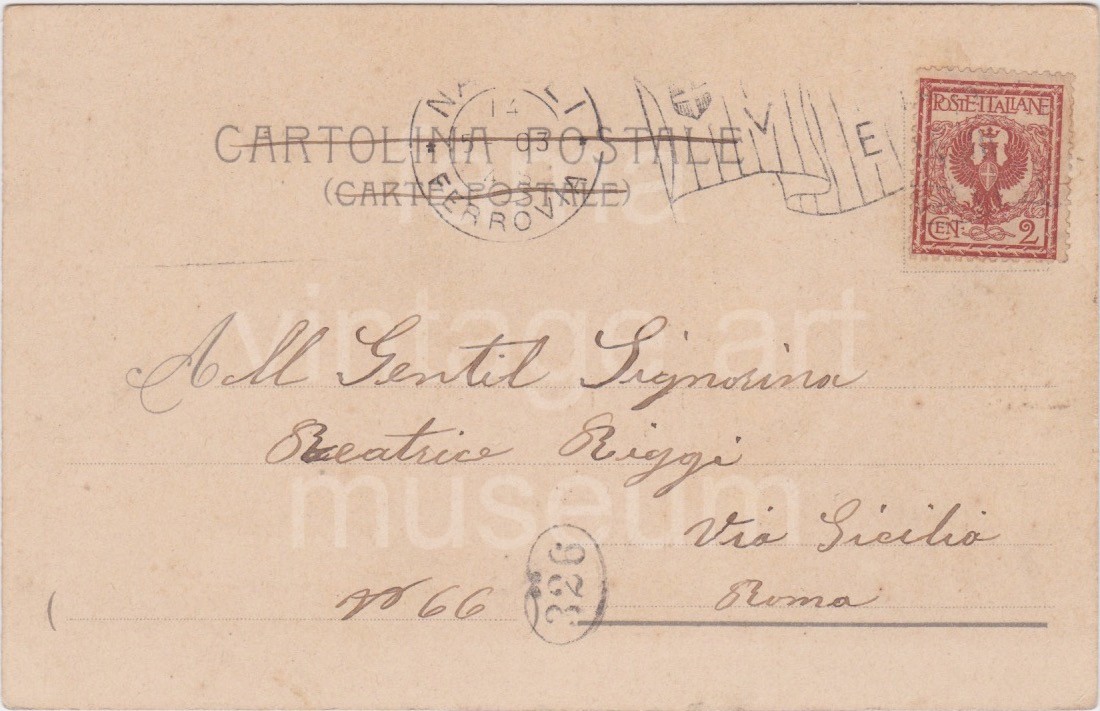 CARTOLINA POSTALE
(CARTE POSTALE)
14
03
FERROVIA
V E
POSTE·ITALIANE
CEN. 2
All Gentil Signorina
Beatrice Riggi
Via Sicilia
No 66
Roma
326
vintage art
museum